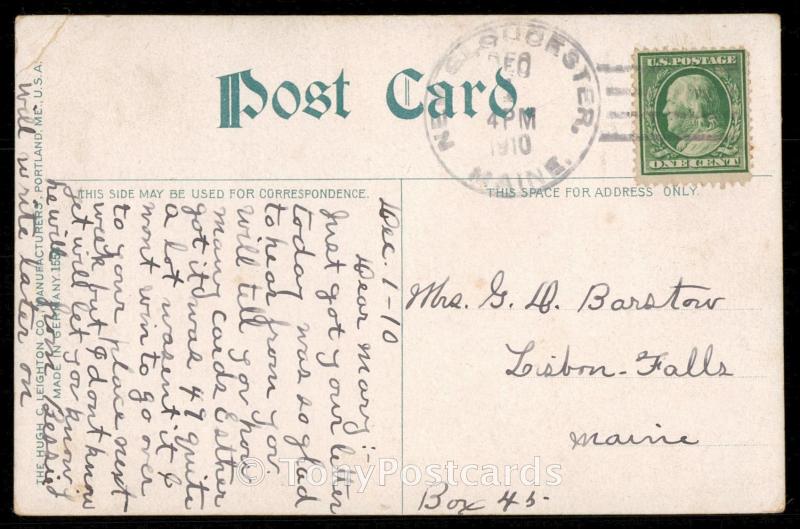 Post Card.
NEW GLOUCESTER, MAINE.
DEC
1
4PM
1910
U.S. POSTAGE
ONE CENT
THIS SIDE MAY BE USED FOR CORRESPONDENCE.
THIS SPACE FOR ADDRESS ONLY.
Dec. 1-10
Dear Mary:-
Just got your letter
today was so glad
to hear from you
will tell you how
many cards Esther
got it was 49 quite
a lot wasent it &
wont win to go over
to your place next
week but I dont know
yet will let you know
he will
will write later on
Mrs. G. D. Barstow
Lisbon-Falls
Maine
Box 45-
THE HUGH C. LEIGHTON CO., MANUFACTURERS, PORTLAND, ME., U.S.A.
MADE IN GERMANY.
© TonyPostcards